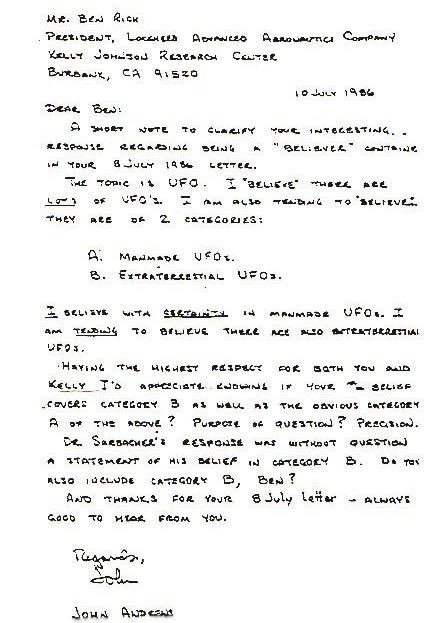 Mr. Ben Rich
President, Lockheed Advanced Aeronautics Company
Kelly Johnson Research Center
Burbank, CA 91520
10 July 1986
Dear Ben:
A short note to clarify your interesting
response regarding being a "believer" containe
in your 8 July 1986 letter.
The topic is UFO. I "believe" there are
lots of UFO's. I am also tending to "believe"
they are of 2 categories:
A. Manmade UFOs.
B. Extraterrestial UFOs.
I believe with certainty in manmade UFOs. I
am tending to believe there are also extraterrestial
UFOs.
Having the highest respect for both you and
Kelly I'd appreciate knowing if your belief
covers category B as well as the obvious category
A of the above? Purpose of question? Precision.
Dr. Sarbacher's response was without question
a statement of his belief in category B. Do you
also include category B, Ben?
And thanks for your 8 July letter - always
good to hear from you.
Regards,
John
John Andrews